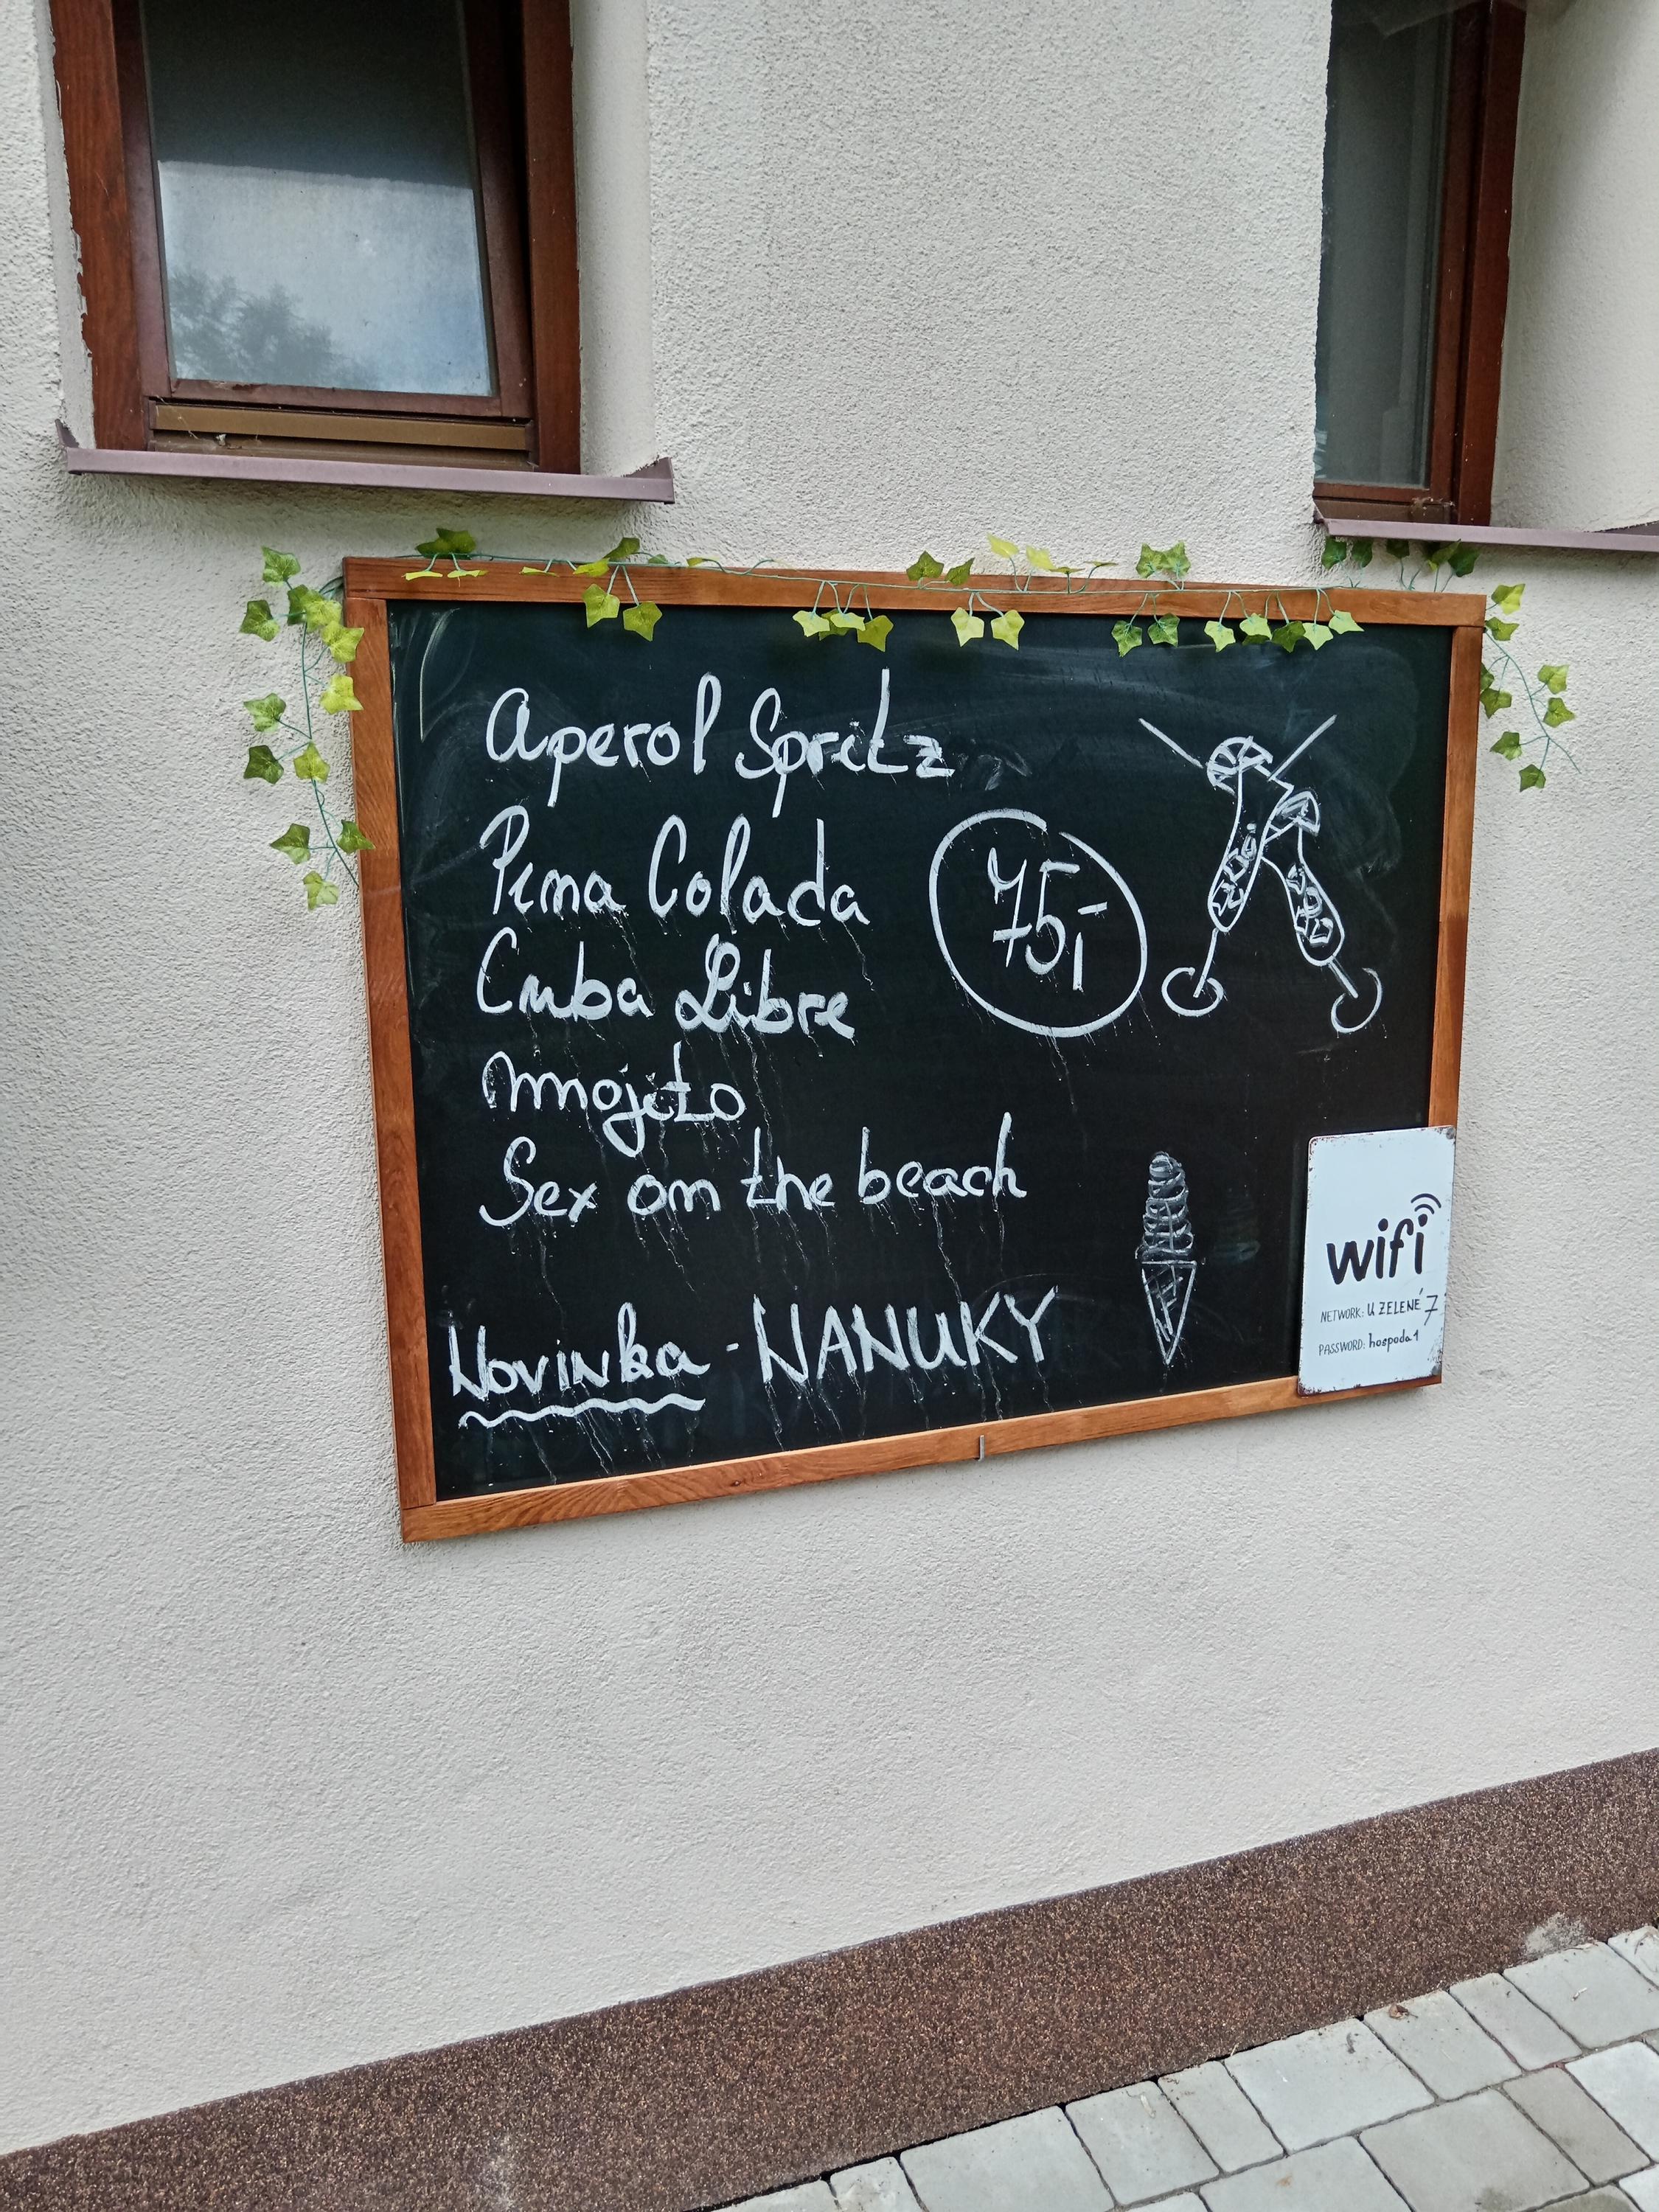 Aperol Spritz
Pina Colada
75,-
Cuba Libre
Mojito
Sex on the beach
Novinka - NANUKY
wifi
NETWORK: U ZELENÉ 7
PASSWORD: hospoda1